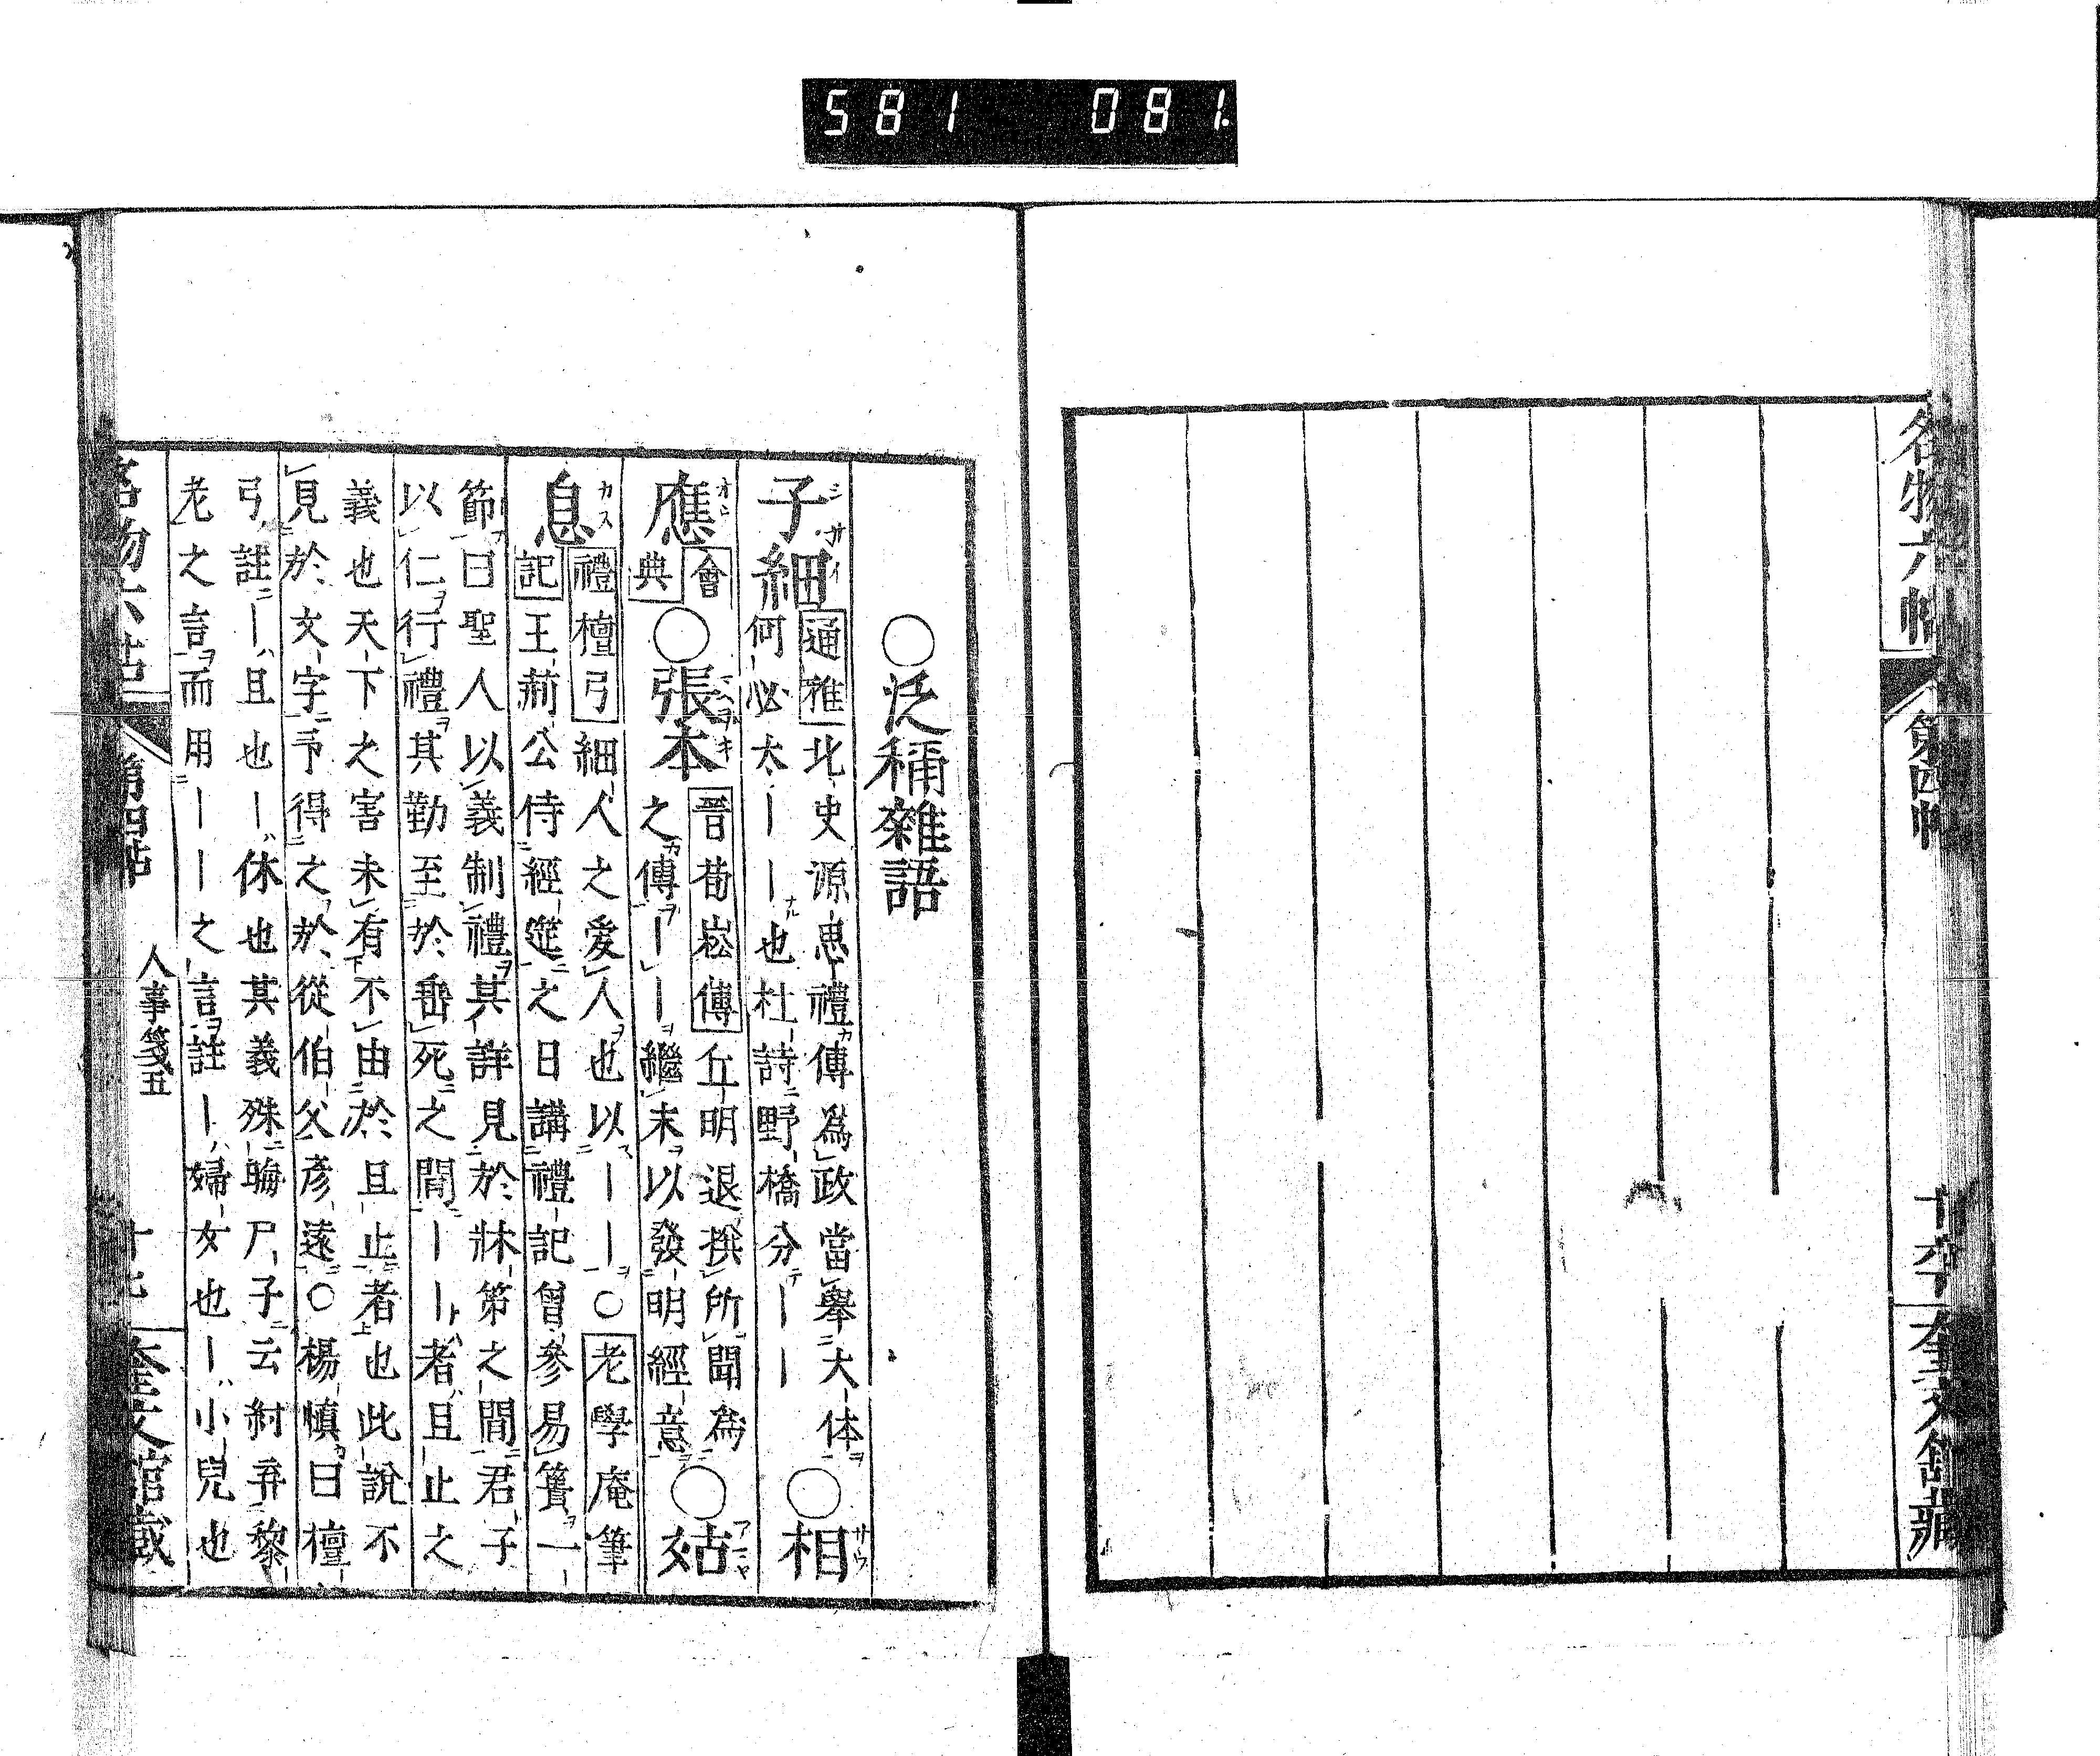 581 081.
名物六帖 第四帖 奎文館藏
○泛稱雜語
子細 通雅 北史源思禮傳為政當舉大体
何必太｜｜｜也杜詩野橋分｜｜ ○相
應 會典 ○張本 晉荀崧傳 丘明退撰所聞為
之傳｜｜繼末以發明經意 ○姑
息 禮檀弓 細人之愛人也以｜｜○老學庵筆
記 王荊公侍經筵之日講禮記曾參易簀一
節曰聖人以義制禮其詳見於牀笫之間君子
以仁行禮其勤至於垂死之間｜｜者且止之
義也天下之害未有不由於且止者也此說不
見於文字予得之於從伯父彥遠○楊慎曰檀
弓註｜且也｜休也其義殊晦尸子云紂弃黎
老之言而用｜｜之言註｜婦女也｜小兒也
名物六帖 第四帖 人事箋五 奎文館藏